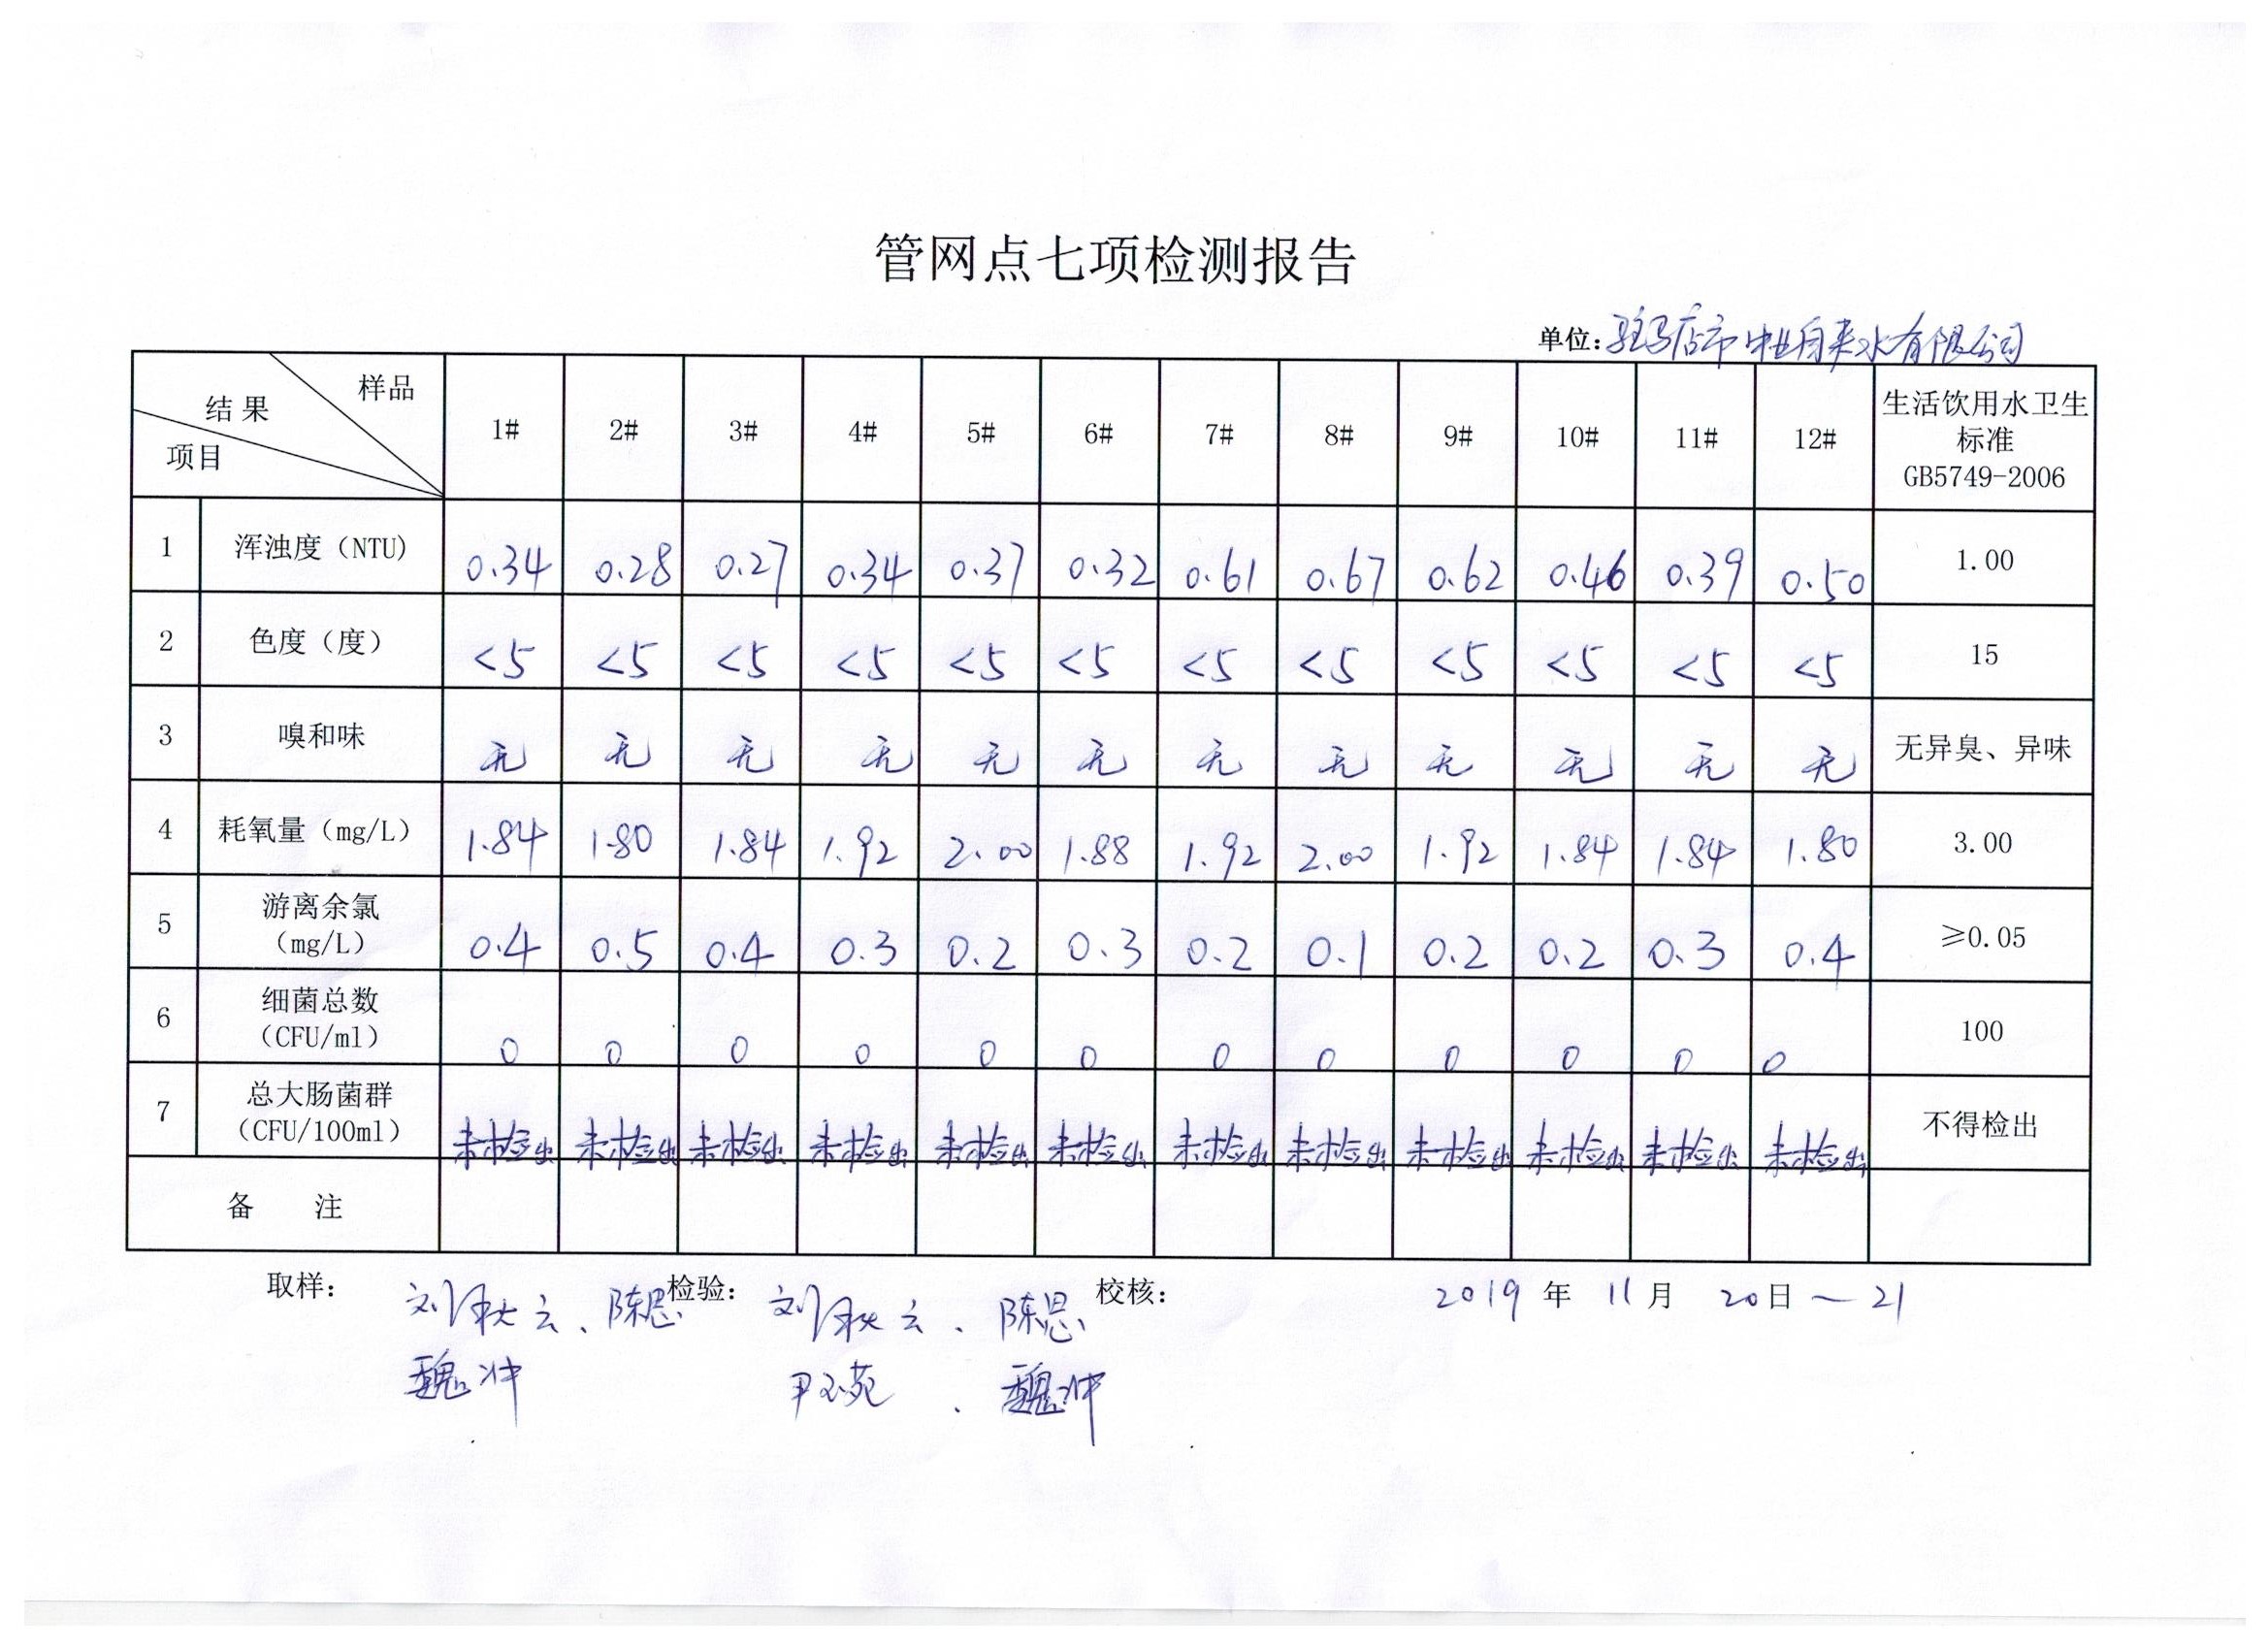 管网点七项检测报告
单位:驻马店市中业自来水有限公司
样品 结果 项目 1# 2# 3# 4# 5# 6# 7# 8# 9# 10# 11# 12# 生活饮用水卫生标准 GB5749-2006
1 浑浊度（NTU） 0.34 0.28 0.27 0.34 0.37 0.32 0.61 0.67 0.62 0.46 0.39 0.50 1.00
2 色度（度） <5 <5 <5 <5 <5 <5 <5 <5 <5 <5 <5 <5 15
3 嗅和味 无 无 无 无 无 无 无 无 无 无 无 无 无异臭、异味
4 耗氧量（mg/L） 1.84 1.80 1.84 1.92 2.00 1.88 1.92 2.00 1.92 1.84 1.84 1.80 3.00
5 游离余氯（mg/L） 0.4 0.5 0.4 0.3 0.2 0.3 0.2 0.1 0.2 0.2 0.3 0.4 ≥0.05
6 细菌总数（CFU/ml） 0 0 0 0 0 0 0 0 0 0 0 0 100
7 总大肠菌群（CFU/100ml） 未检出 未检出 未检出 未检出 未检出 未检出 未检出 未检出 未检出 未检出 未检出 未检出 不得检出
备 注
取样: 刘秋云、陈思 检验: 刘秋云、陈思 校核: 2019年11月20日~21
魏冲 尹玉苑、魏冲